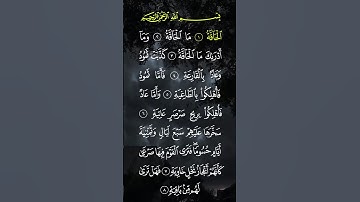 بِسْمِ ٱللَّهِ ٱلرَّحْمَٰنِ ٱلرَّحِيمِ
ٱلْحَآقَّةُ ١ مَا ٱلْحَآقَّةُ ٢ وَمَآ
أَدْرَىٰكَ مَا ٱلْحَآقَّةُ ٣ كَذَّبَتْ ثَمُودُ
وَعَادٌۢ بِٱلْقَارِعَةِ ٤ فَأَمَّا ثَمُودُ
فَأُهْلِكُوا۟ بِٱلطَّاغِيَةِ ٥ وَأَمَّا عَادٌ
فَأُهْلِكُوا۟ بِرِيحٍ صَرْصَرٍ عَاتِيَةٍ ٦
سَخَّرَهَا عَلَيْهِمْ سَبْعَ لَيَالٍ وَثَمَٰنِيَةَ
أَيَّامٍ حُسُومًا فَتَرَى ٱلْقَوْمَ فِيهَا صَرْعَىٰ
كَأَنَّهُمْ أَعْجَازُ نَخْلٍ خَاوِيَةٍ ٧ فَهَلْ تَرَىٰ
لَهُم مِّنۢ بَاقِيَةٍ ٨